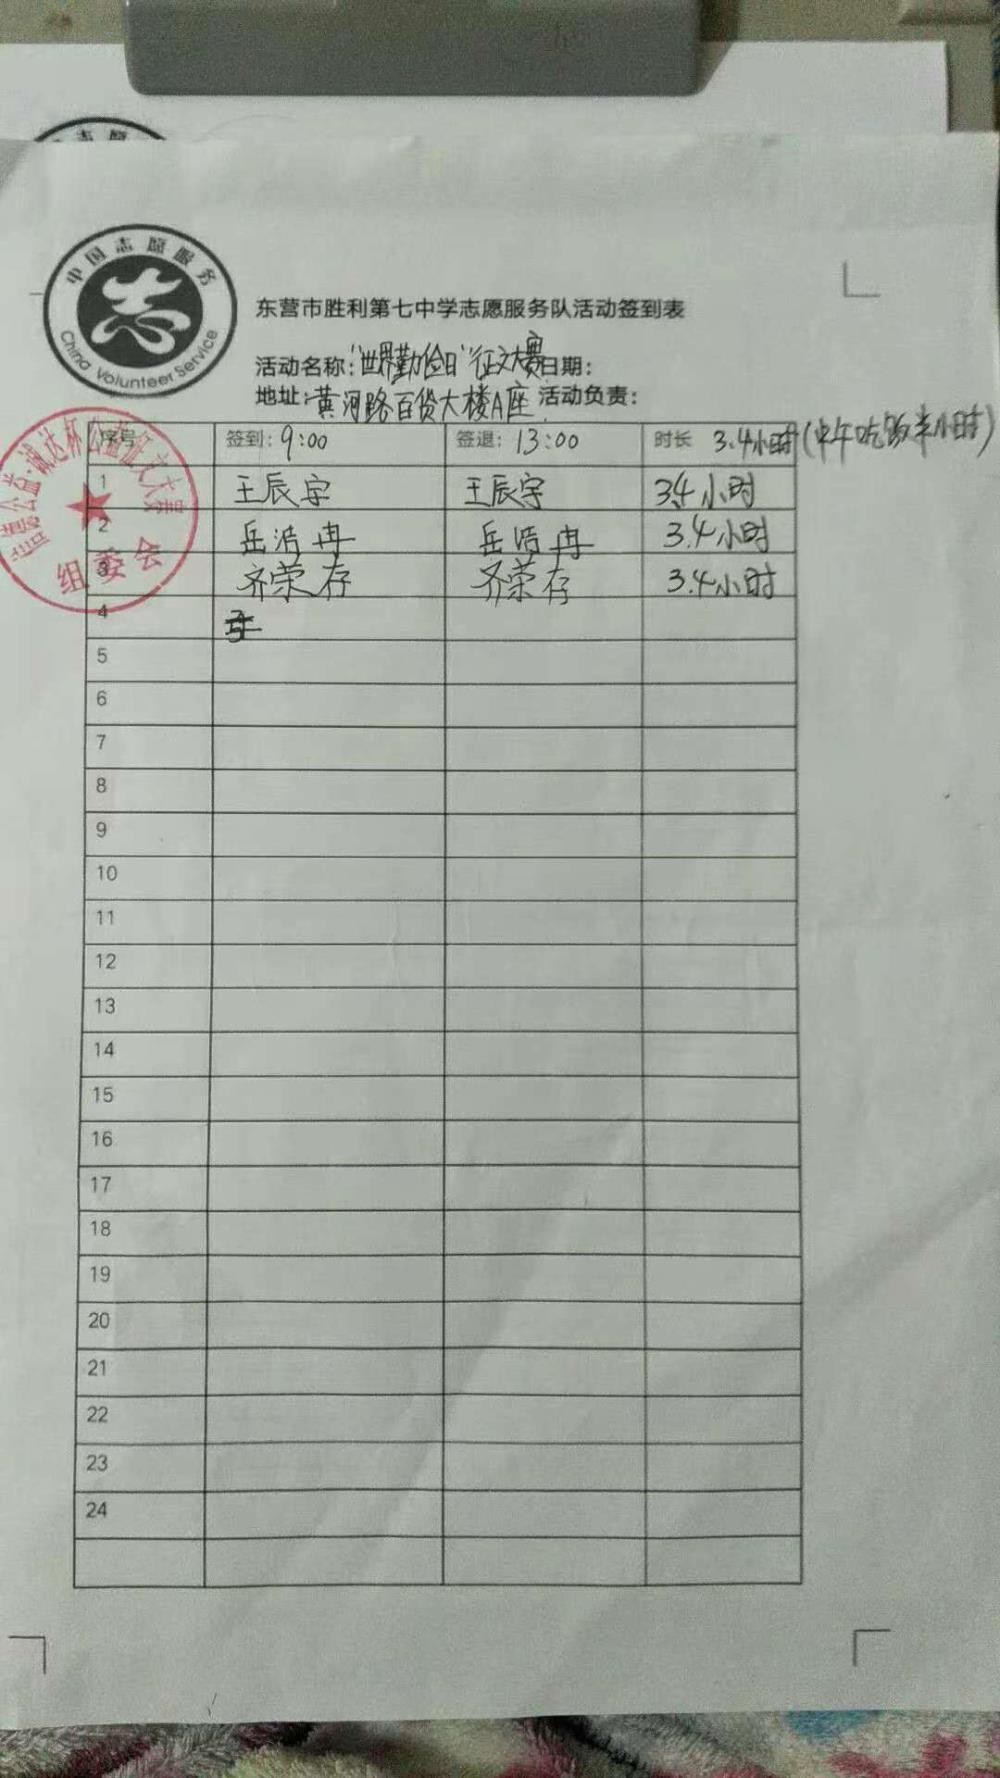 志愿
中国志愿服务
志
China Volunteer Service
东营市胜利第七中学志愿服务队活动签到表
活动名称:"世界勤俭日"征文大赛 日期:
地址:黄河路百货大楼A座 活动负责:
序号 签到:9:00 签退:13:00 时长 3.4小时(中午吃饭半小时)
公益·诚达杯公益征文大赛
组委会
1 王辰宇 王辰宇 3.4小时
2 岳浩冉 岳浩冉 3.4小时
3 齐荣存 齐荣存 3.4小时
4
5
6
7
8
9
10
11
12
13
14
15
16
17
18
19
20
21
22
23
24